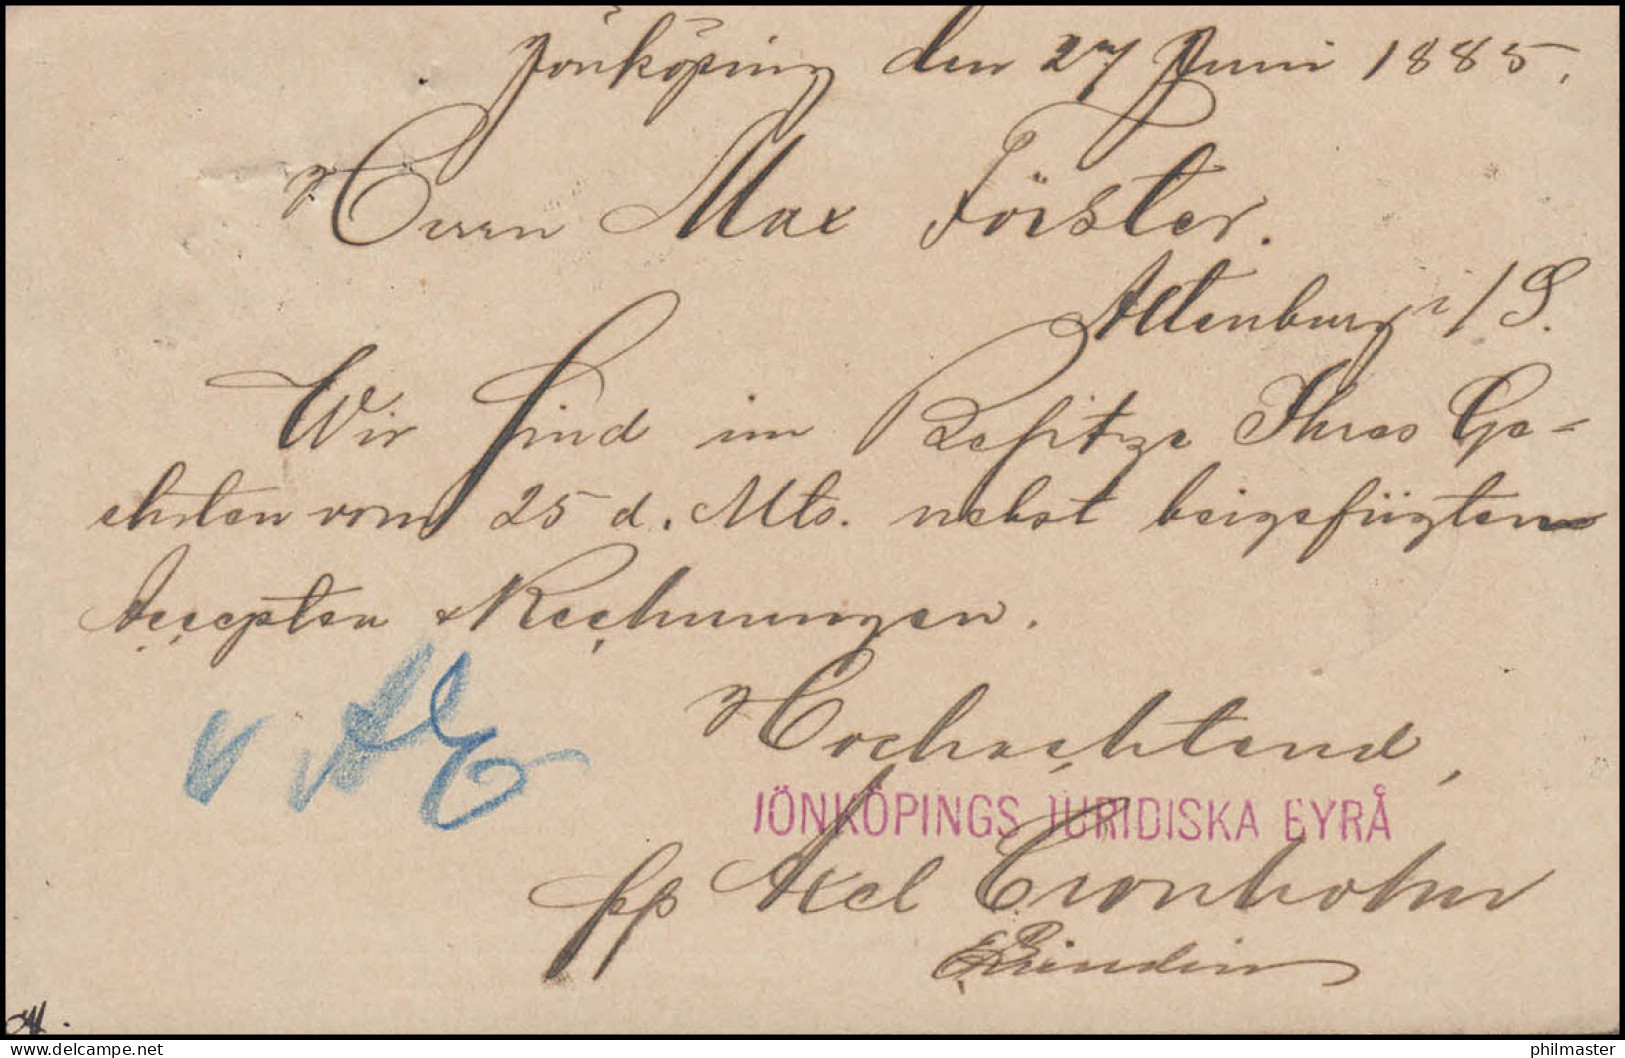 Jönköping den 27 Juni 1885.
Herrn Max Förster.
Altenburg i/S.
Wir sind im Besitze Ihres Ge-
ehrten vom 25 d. Mts. nebst beigefügten
Accepten & Rechnungen.
Hochachtend,
JÖNKÖPINGS JURIDISKA BYRÅ
pp Axel
delcampe.net
philmaster